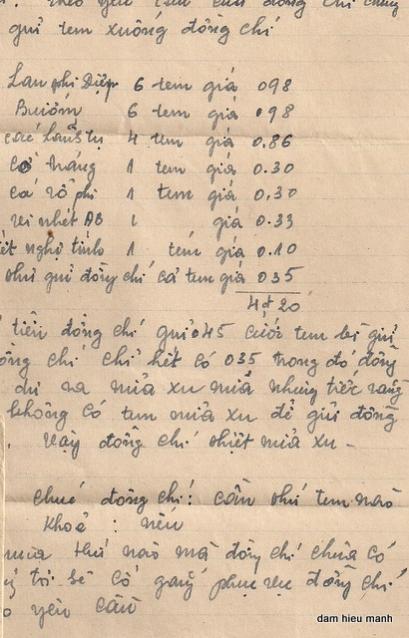 theo yêu cầu của đồng chí chúng
gửi tem xuống đồng chí
Lan phi Điệp 6 tem giá 098
Bướm 6 tem giá 098
các lãnh tụ 4 tem giá 0.86
Cờ tháng 1 tem giá 0.30
cá rô phi 1 tem giá 0,30
vi nhét AB 1 giá 0.33
nghệ tĩnh 1 tem giá 0.10
phí gửi đồng chí cả tem giá 035
4đ20
tiền đồng chí gửi 045 cước tem bị gửi
đồng chí chỉ hết có 035 trong đó đồng
dư ra nửa xu nữa nhưng tiếc rằng
không có tem nửa xu để gửi đồng
vậy đồng chí thiệt nửa xu -
chúc đồng chí: cần thứ tem nào
Khoẻ : nếu
mua thứ nào mà đồng chí chưa có
tôi sẽ cố gắng phục vụ đồng chí
yêu cầu
dam hieu manh